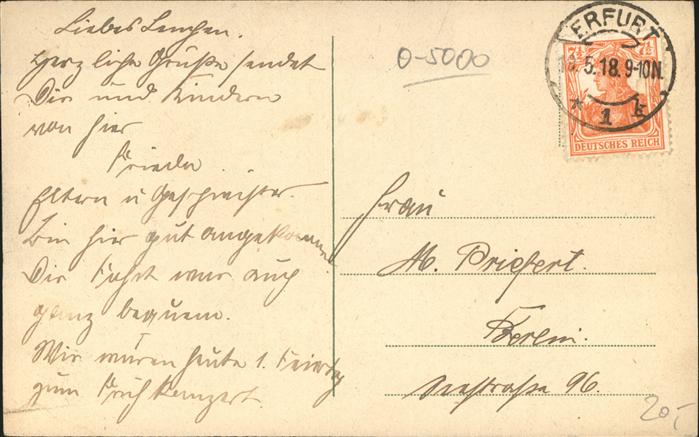 Liebes Lenchen.
Herzliche Grüße sendet
Dir und Kindern
von hier
Frieda
Eltern u Geschwister.
Bin hier gut angekommen
Die Fahrt war auch
ganz bequem.
Wir waren heute 1. Feiertag
zum Frühkonzert.
0-5000
ERFURT
5.18. 9-10N.
* 1 k
7½ 7½
DEUTSCHES REICH
Frau
M. Priefert.
Berlin.
Seestraße 96.
20,-